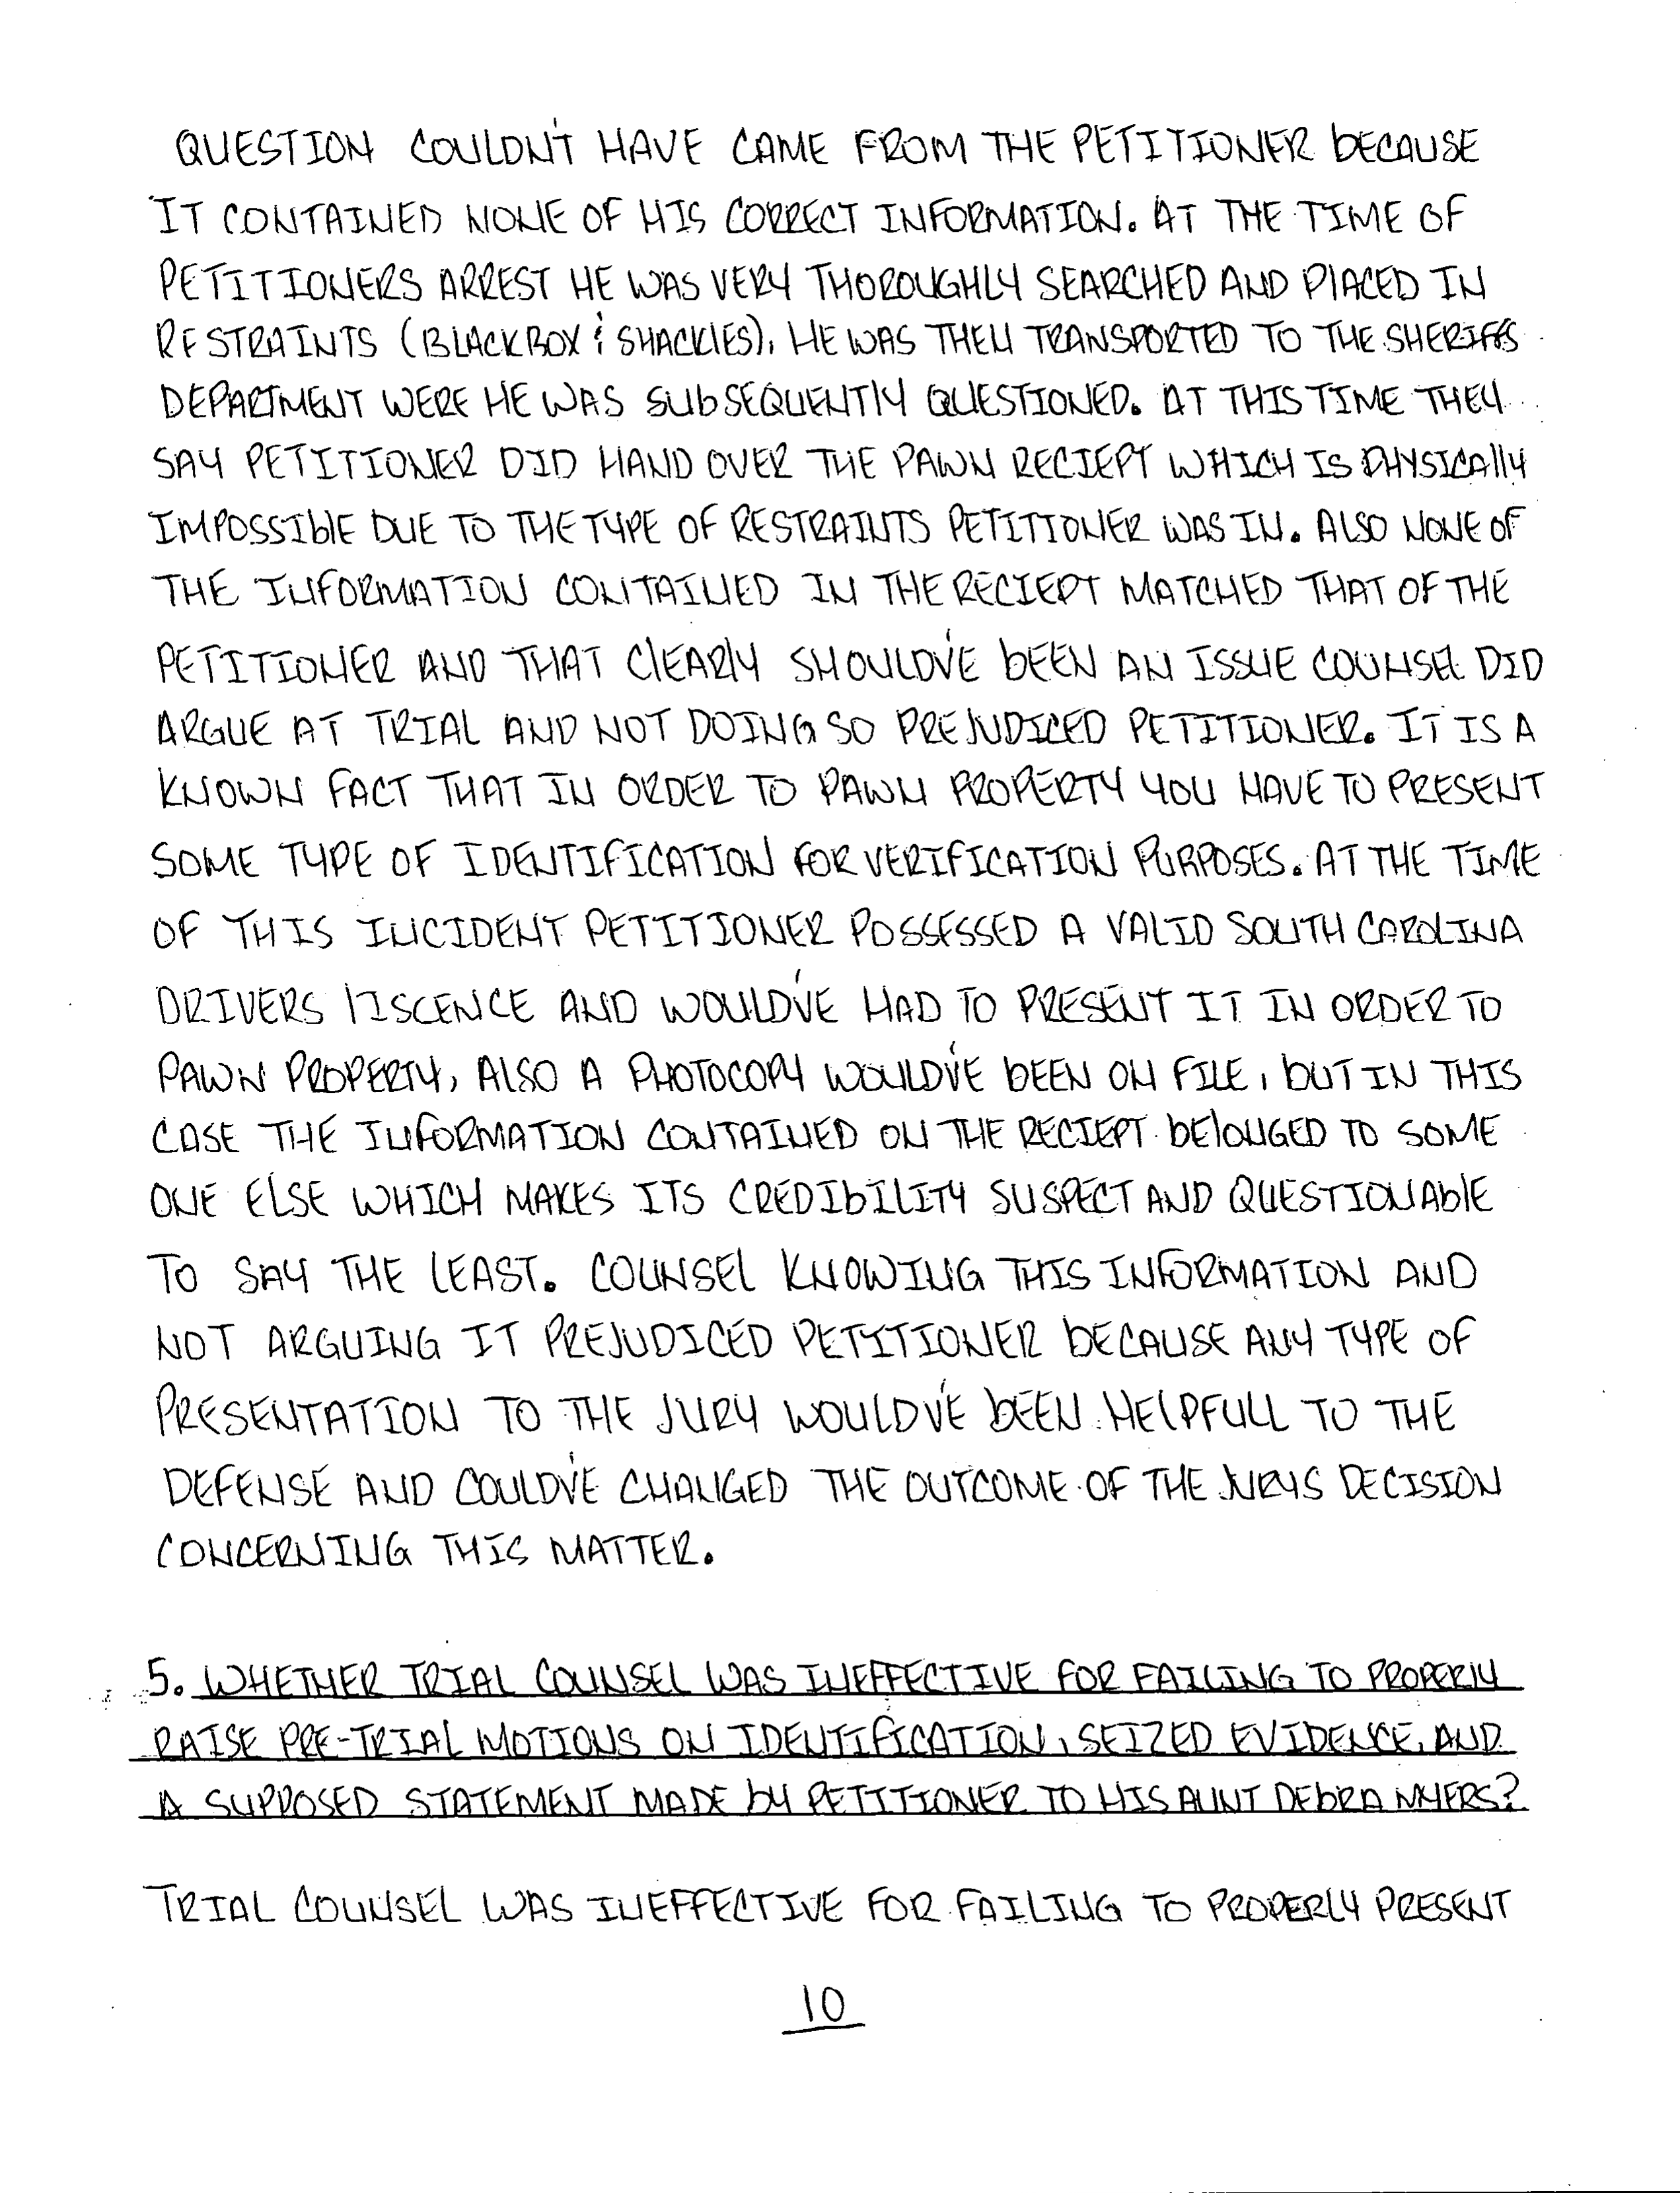 QUESTION COULDN'T HAVE CAME FROM THE PETITIONER bECAUSE
IT CONTAINED NONE OF HIS CORRECT INFORMATION. AT THE TIME OF
PETITIONERS ARREST HE WAS VERY THOROUGHLY SEARCHED AND PlACED IN
RESTRAINTS (BLACKBOX & SHACKlES), HE WAS THEN TRANSPORTED TO THE SHERIFFS
DEPARTMENT WERE HE WAS SUbSEQUENTlY QUESTIONED. AT THIS TIME THEY
SAY PETITIONER DID HAND OVER THE PAWN RECIEPT WHICH IS PHYSICAlly
IMPOSSIblE DUE TO THE TYPE OF RESTRAINTS PETITIONER WAS IN. ALSO NONE OF
THE INFORMATION CONTAINED IN THE RECIEPT MATCHED THAT OF THE
PETITIONER AND THAT ClEARlY SHOULD'VE bEEN AN ISSUE COUNSEL DID
ARGUE AT TRIAL AND NOT DOING SO PREJUDICED PETITIONER. IT IS A
KNOWN FACT THAT IN ORDER TO PAWN PROPERTY YOU HAVE TO PRESENT
SOME TYPE OF IDENTIFICATION FOR VERIFICATION PURPOSES. AT THE TIME
OF THIS INCIDENT PETITIONER POSSESSED A VALID SOUTH CAROLINA
DRIVERS lISCENCE AND WOULD'VE HAD TO PRESENT IT IN ORDER TO
PAWN PROPERTY, ALSO A PHOTOCOPY WOULD'VE bEEN ON FILE, bUT IN THIS
CASE THE INFORMATION CONTAINED ON THE RECIEPT bElONGED TO SOME
ONE ELSE WHICH MAKES ITS CREDIbILITY SUSPECT AND QUESTIONAblE
TO SAY THE LEAST. COUNSEL KNOWING THIS INFORMATION AND
NOT ARGUING IT PREJUDICED PETITIONER bECAUSE ANY TYPE OF
PRESENTATION TO THE JURY WOULD'VE bEEN HElPFULL TO THE
DEFENSE AND COULD'VE CHANGED THE OUTCOME OF THE JURYS DECISION
CONCERNING THIS MATTER.
5. WHETHER TRIAL COUNSEL WAS INEFFECTIVE FOR FAILING TO PROPERlY
RAISE PRE-TRIAL MOTIONS ON IDENTIFICATION, SEIZED EVIDENCE, AND
A SUPPOSED STATEMENT MADE bY PETITIONER TO HIS AUNT DEbRA MYERS?
TRIAL COUNSEL WAS INEFFECTIVE FOR FAILING TO PROPERLY PRESENT
10